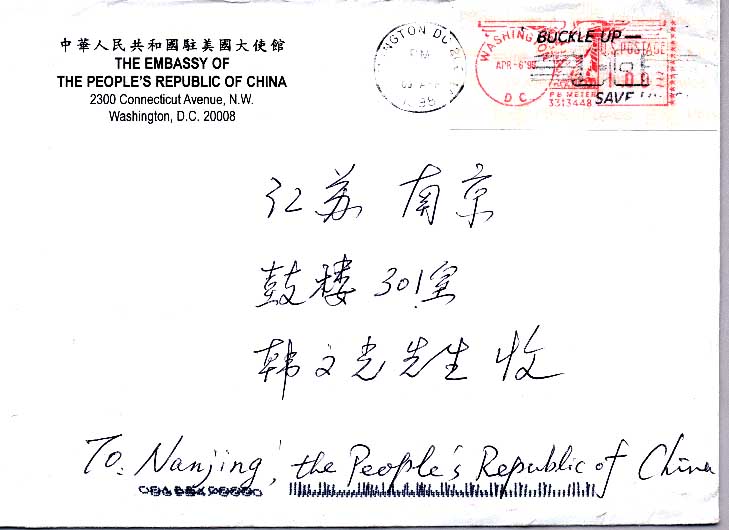 中華人民共和國駐美國大使館
THE EMBASSY OF
THE PEOPLE'S REPUBLIC OF CHINA
2300 Connecticut Avenue, N.W.
Washington, D.C. 20008
BUCKLE UP—
WASHINGTON
U.S. POSTAGE
APR-6'98
D C
PB METER
3313448
SAVE
江苏 南京
鼓楼 301室
韩文光先生 收
To: Nanjing, the People's Republic of China